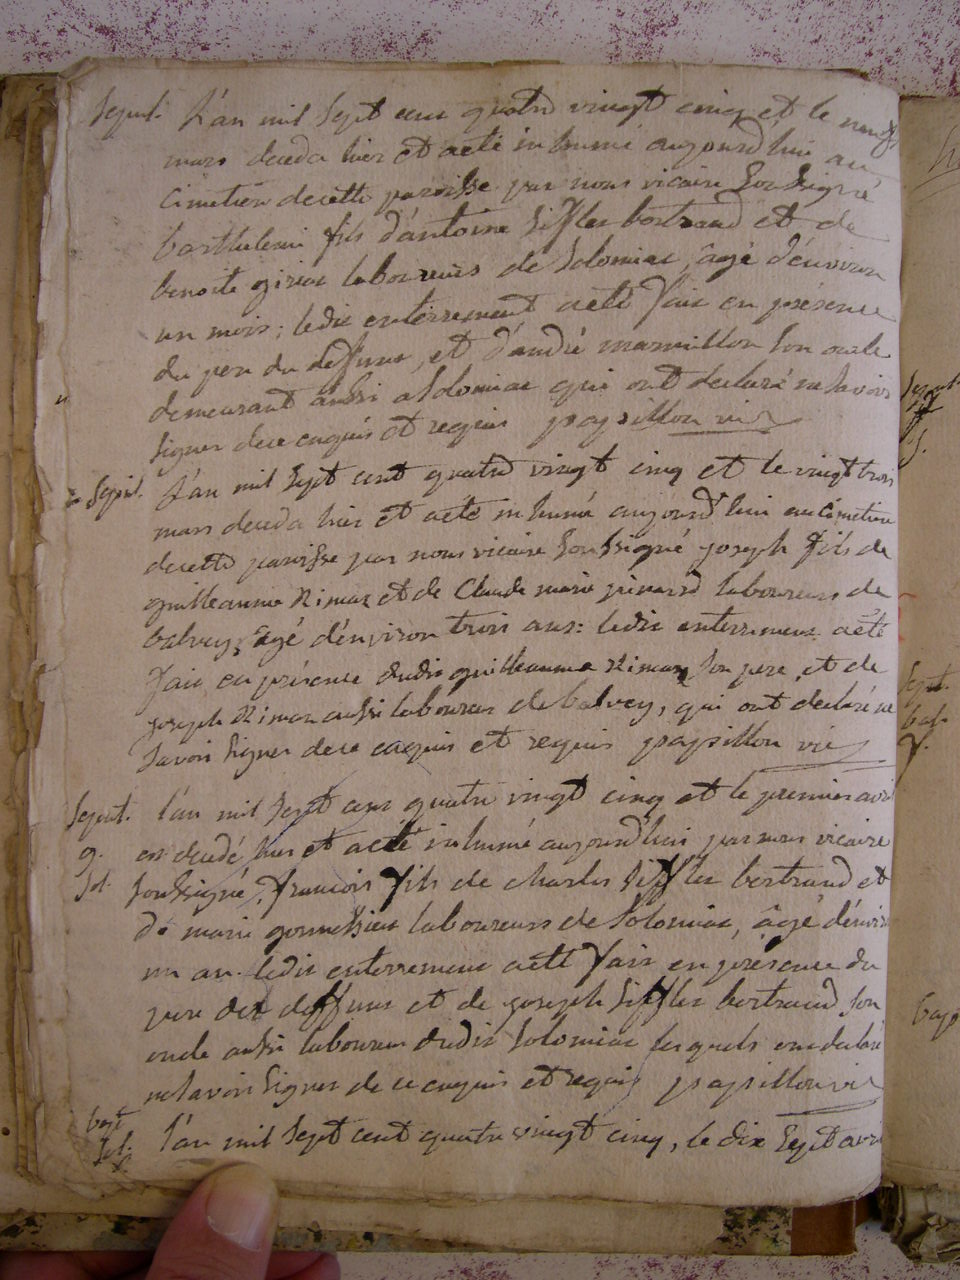 sepul. L'an mil sept cent quatre vingt cinq et le neuf
mars deceda hier et aeté inhumé aujourd'hui au
cimetiere decette paroisse par nous vicaire soussigné
barthelemi fils d'antoine Siffler bertrand et de
benoite laboureurs de Solomiac, âgé d'environ
un mois; ledit enterrement aeté fait en présence
du pere du deffunt, et d'andré marmillon son oncle
demeurant aussi a Solomiac qui ont declaré ne savoir
signer dece enquis et requis papillon vic
sepul. L'an mil sept cent quatre vingt cinq et le vingt trois
mars deceda hier et aeté inhumé aujourd'hui au cimetiere
decette paroisse par nous vicaire soussigné joseph fils de
guilleaume Rimaz et de Claude marie laboureurs de
balvey, âgé d'environ trois ans: ledit enterrement aeté
fait en présence dudit guilleaume Rimaz son pere, et de
joseph Rimaz aussi laboureur de balvey, qui ont declaré ne
savoir signer dece enquis et requis papillon vic
Sepul. l'an mil sept cent quatre vingt cinq et le premier avril
g. est decedé hier et aeté inhumé aujourd'hui par nous vicaire
Sol. soussigné, françois fils de charles Siffler bertrand et
de marie laboureurs de Solomiac, âgé d'environ
un an. ledit enterrement aeté fait en présence du
pere du deffunt et de joseph Siffler bertrand son
oncle aussi laboureur dudit Solomiac lesquels ont declaré
ne savoir signer de ce enquis et requis papillon vic
bapt
Sol. l'an mil sept cent quatre vingt cinq, le dix sept avril